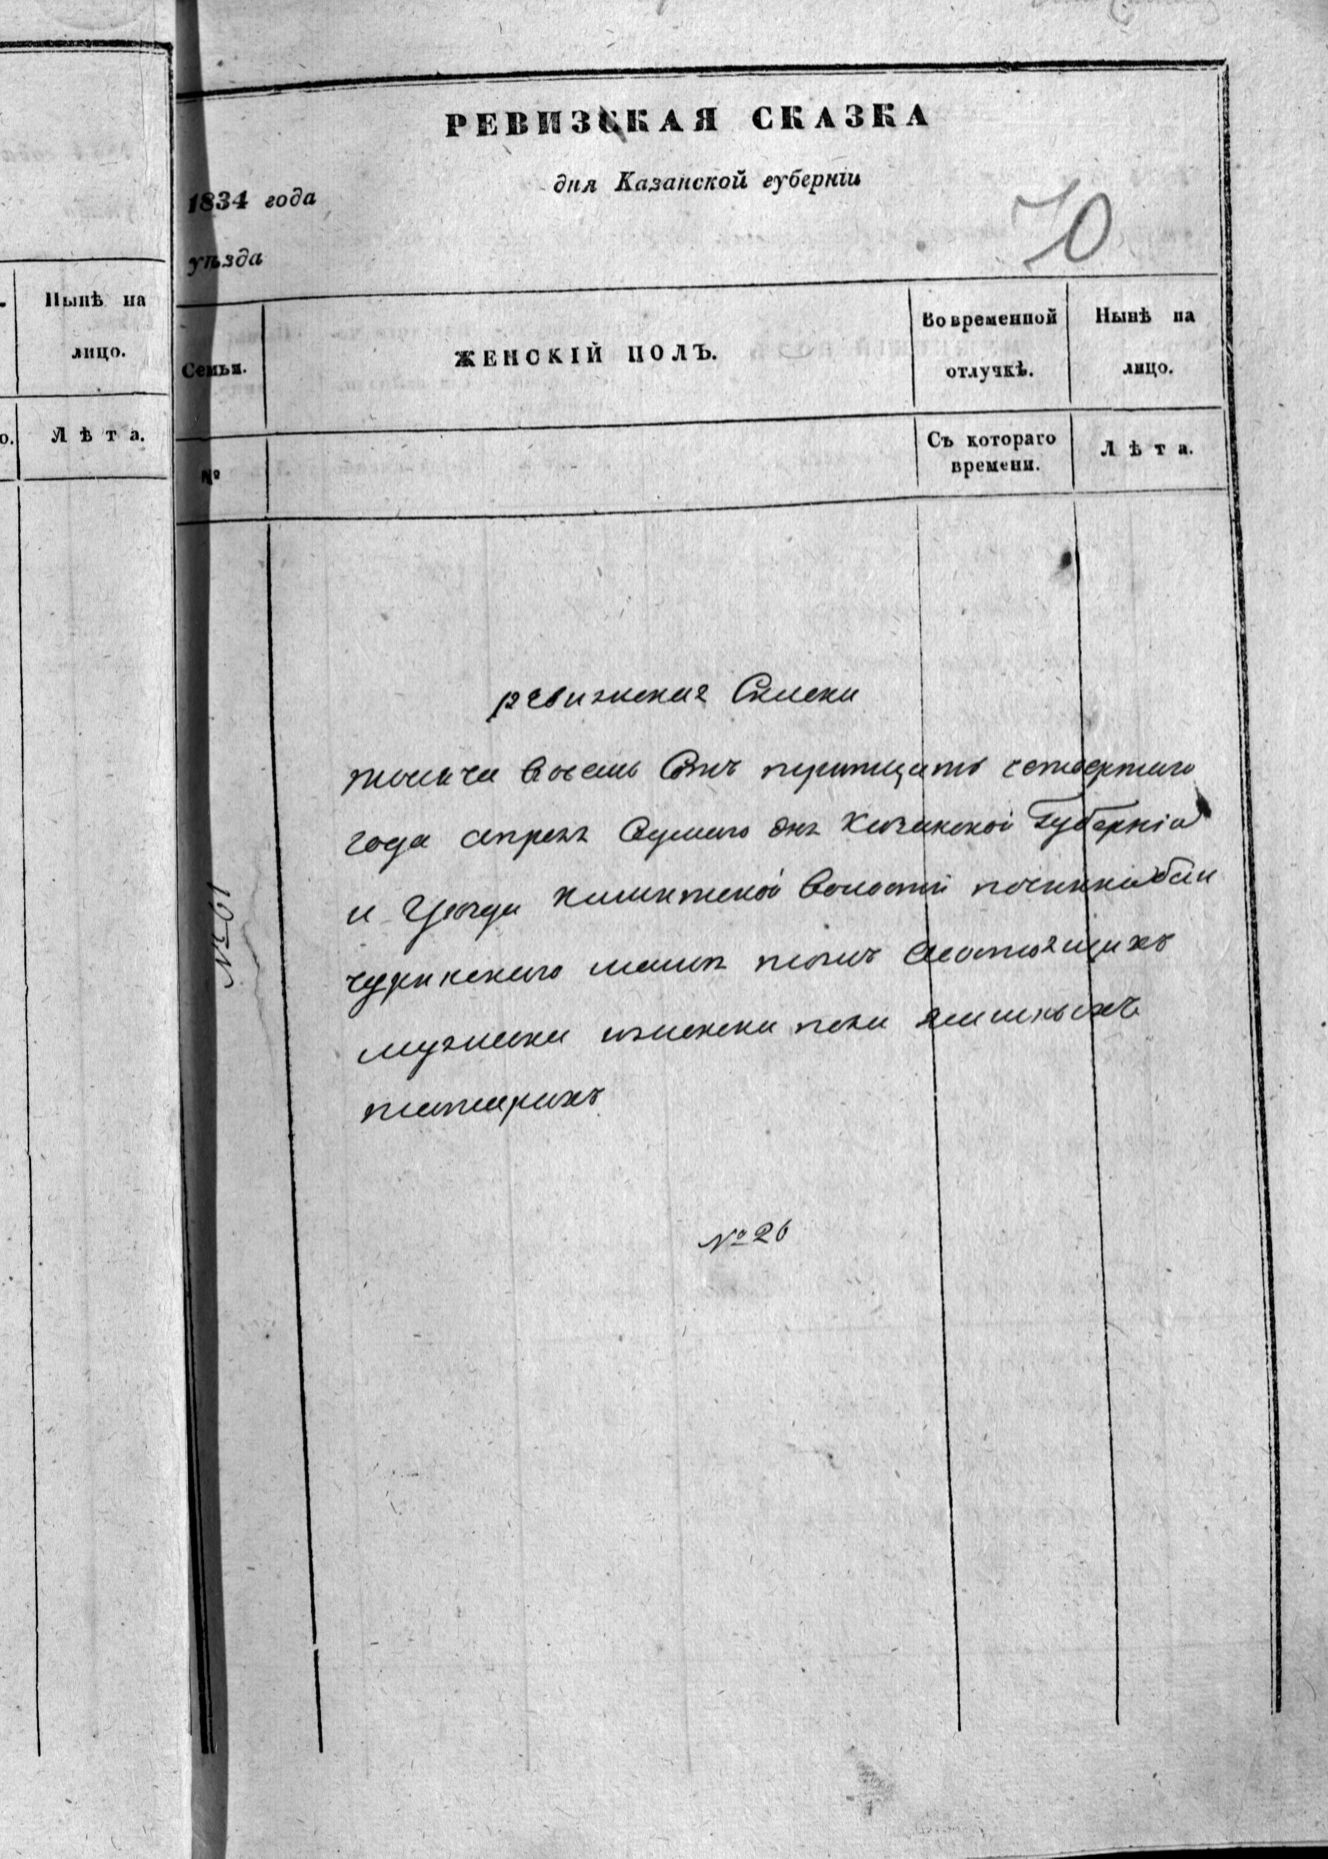 РЕВИЗСКАЯ СКАЗКА
1834 года
дня Казанской губерніи
70
уѣзда
Нынѣ на
лицо.
Лѣта.
Семьи.
ЖЕНСКІЙ ПОЛЪ.
Во временной
отлучкѣ.
Нынѣ на
лицо.
№
Съ котораго
времени.
Лѣта.
ревижская Скаска
тысяча Восемь Сотъ тритцать четвертаго
года апреля дня Казанской Губерніи
и Уезда Волости починка
чуринскаго изъ
мужеска и женска пола ясашныхъ
татарахъ
№ 26
№ 61